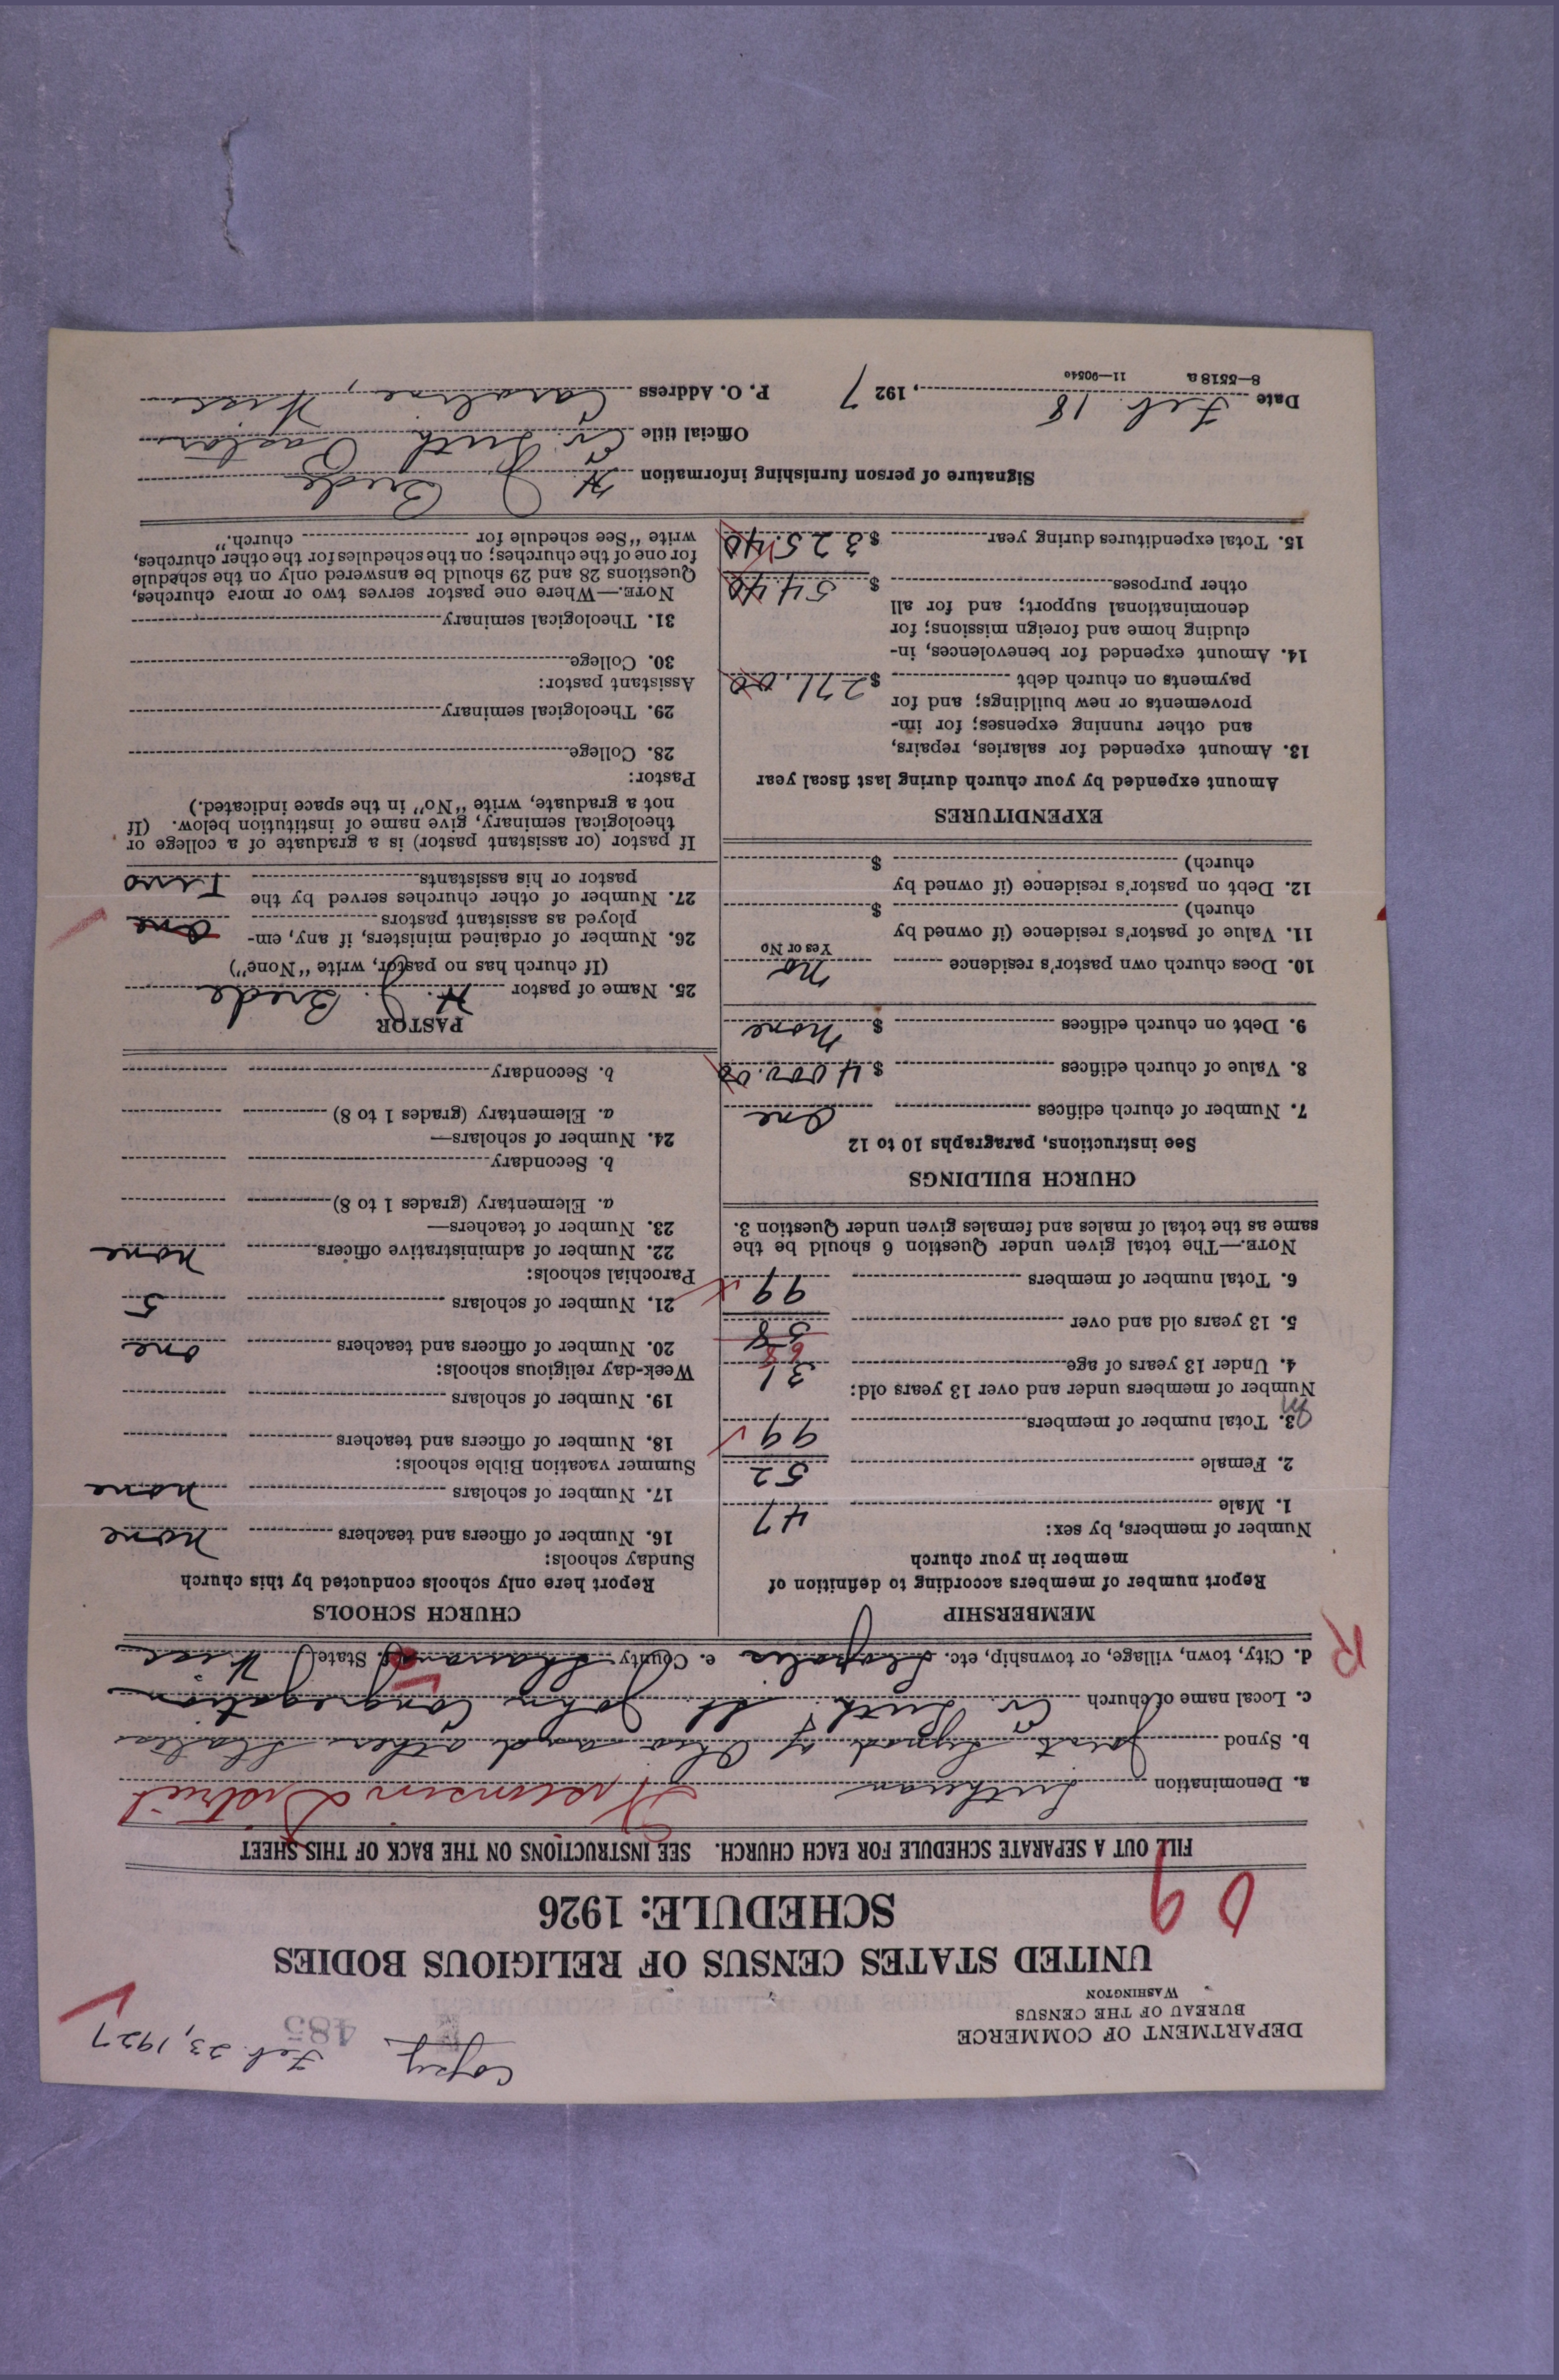 Copy. Feb. 23, 1927
485
DEPARTMENT OF COMMERCE
BUREAU OF THE CENSUS
WASHINGTON
UNITED STATES CENSUS OF RELIGIOUS BODIES
SCHEDULE: 1926
FILL OUT A SEPARATE SCHEDULE FOR EACH CHURCH. SEE INSTRUCTIONS ON THE BACK OF THIS SHEET
a. Denomination Lutheran Wisconsin District
b. Synod Joint Synod of Ohio and other States
c. Local name of church Ev. Luth. St. John Congregation
d. City, town, village, or township, etc. Leopolis e. County Shawano f. State Wisc
R
MEMBERSHIP
Report number of members according to definition of
member in your church
Number of members, by sex:
1. Male 47
2. Female 52
3. Total number of members 99
Number of members under and over 13 years old:
4. Under 13 years of age 31
5. 13 years old and over 58 68
6. Total number of members 99
NOTE.—The total given under Question 6 should be the
same as the total of males and females given under Question 3.
CHURCH BUILDINGS
See instructions, paragraphs 10 to 12
7. Number of church edifices One
8. Value of church edifices $ 4000.00
9. Debt on church edifices $ none
10. Does church own pastor's residence no
Yes or No
11. Value of pastor's residence (if owned by
church) $
12. Debt on pastor's residence (if owned by
church) $
EXPENDITURES
Amount expended by your church during last fiscal year
13. Amount expended for salaries, repairs,
and other running expenses; for im-
provements or new buildings; and for
payments on church debt $ 271.00
14. Amount expended for benevolences, in-
cluding home and foreign missions; for
denominational support; and for all
other purposes $ 54.40
15. Total expenditures during year $ 325.40
CHURCH SCHOOLS
Report here only schools conducted by this church
Sunday schools:
16. Number of officers and teachers none
17. Number of scholars none
Summer vacation Bible schools:
18. Number of officers and teachers
19. Number of scholars
Week-day religious schools:
20. Number of officers and teachers one
21. Number of scholars 5
Parochial schools:
22. Number of administrative officers none
23. Number of teachers—
a. Elementary (grades 1 to 8)
b. Secondary
24. Number of scholars—
a. Elementary (grades 1 to 8)
b. Secondary
PASTOR
25. Name of pastor H. J. Brede
(If church has no pastor, write "None")
26. Number of ordained ministers, if any, em-
ployed as assistant pastors One
27. Number of other churches served by the
pastor or his assistants Two
If pastor (or assistant pastor) is a graduate of a college or
theological seminary, give name of institution below. (If
not a graduate, write "No" in the space indicated.)
Pastor:
28. College
29. Theological seminary
Assistant pastor:
30. College
31. Theological seminary
NOTE.—Where one pastor serves two or more churches,
Questions 28 and 29 should be answered only on the schedule
for one of the churches; on the schedules for the other churches,
write "See schedule for church."
Signature of person furnishing information H. J. Brede
Official title Ev. Luth. Pastor
Date Feb. 18, 1927 P. O. Address Caroline, Wisc
8—5518 a 11—9054a